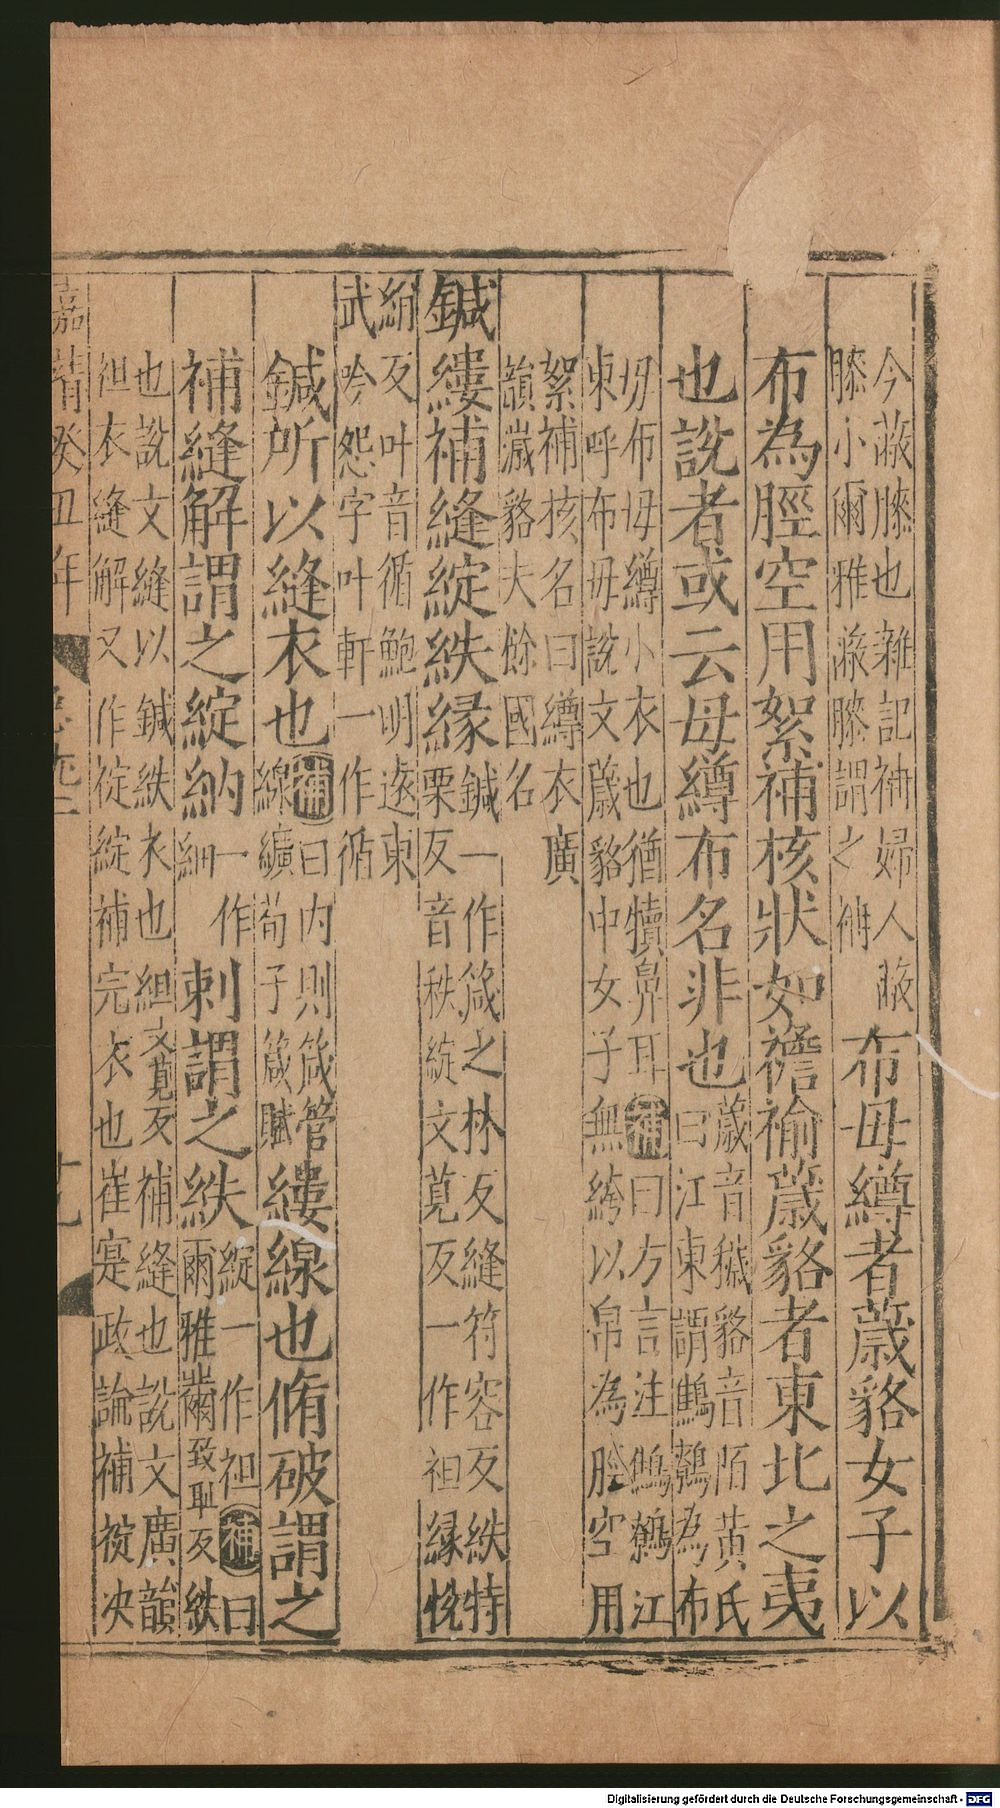 今蔽膝也雜記袡婦人蔽
膝小爾雅蔽膝謂之袡
布母䙖者薉貉女子以
布為脛空用絮補核狀如襜褕薉貉者東北之夷
也說者或云母䙖布名非也
薉音穢貉音陌黃氏
曰江東謂鷦鷯為布
毋布毋䙖小衣也猶犢鼻耳補曰方言注鷦鷯江
東呼布毋說文薉貉中女子無絝以帛為脛空用
絮補核名曰䙖衣廣
韻薉貉夫餘國名
鍼縷補縫綻紩緣
鍼一作箴之林反縫符容反紩特
栗反音秩綻文莧反一作袒緣悅
絹反叶音循鮑明遠東
武吟怨字叶軒一作循
鍼所以縫衣也
補曰內則箴管
線纊荀子箴賦
縷線也脩破謂之
補縫解謂之綻納
一作
紬
刺謂之紩
綻一作袒補曰
爾雅黹致恥反紩
也說文縫以鍼紩衣也組文莧反補縫也說文廣韻
袒衣縫解又作䘺綻補完衣也崔寔政論補䘺决
嘉靖癸丑年
十九
Digitalisierung gefördert durch die Deutsche Forschungsgemeinschaft - DFG